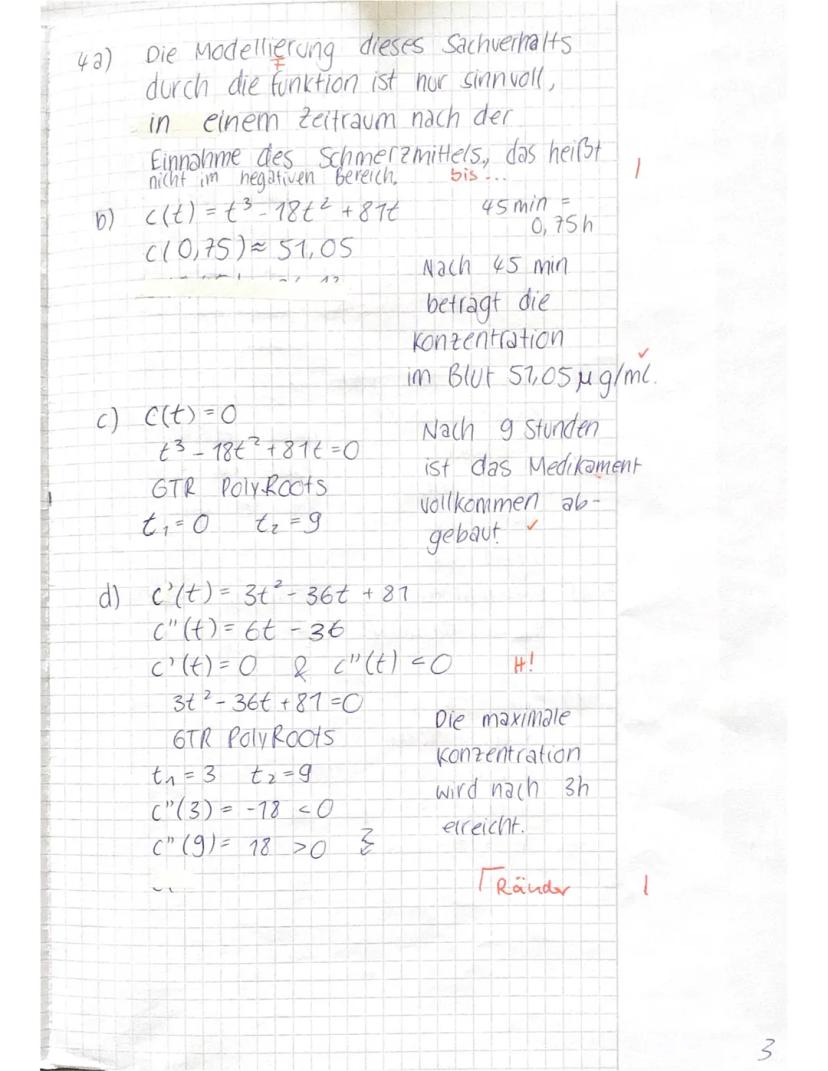 4a) Die Modellierung dieses Sachverhalts
F
durch die funktion ist nur sinnvoll,
in einem Zeitraum nach der
Einnahme des Schmerzmittels, das heißt
nicht im negativen Bereich. bis... I
b) c(t) = t³ - 18t² + 81t 45 min =
0,75h
c(0,75) ≈ 51,05
Nach 45 min
beträgt die
Konzentration ✓
im Blut 51,05 µg/ml.
c) c(t) = 0 Nach 9 Stunden
t³ - 18t² + 81t = 0 ist das Medikament
GTR PolyRoots vollkommen ab-
t₁ = 0 t₂ = 9 gebaut ✓
d) c'(t) = 3t² - 36t + 81
c"(t) = 6t - 36
c'(t) = 0 & c"(t) < 0 H!
3t² - 36t + 81 = 0 Die maximale
GTR PolyRoots Konzentration
t₁ = 3 t₂ = 9 wird nach 3h
c"(3) = -18 < 0 erreicht.
c"(9) = 18 > 0
Γ Ränder I
3